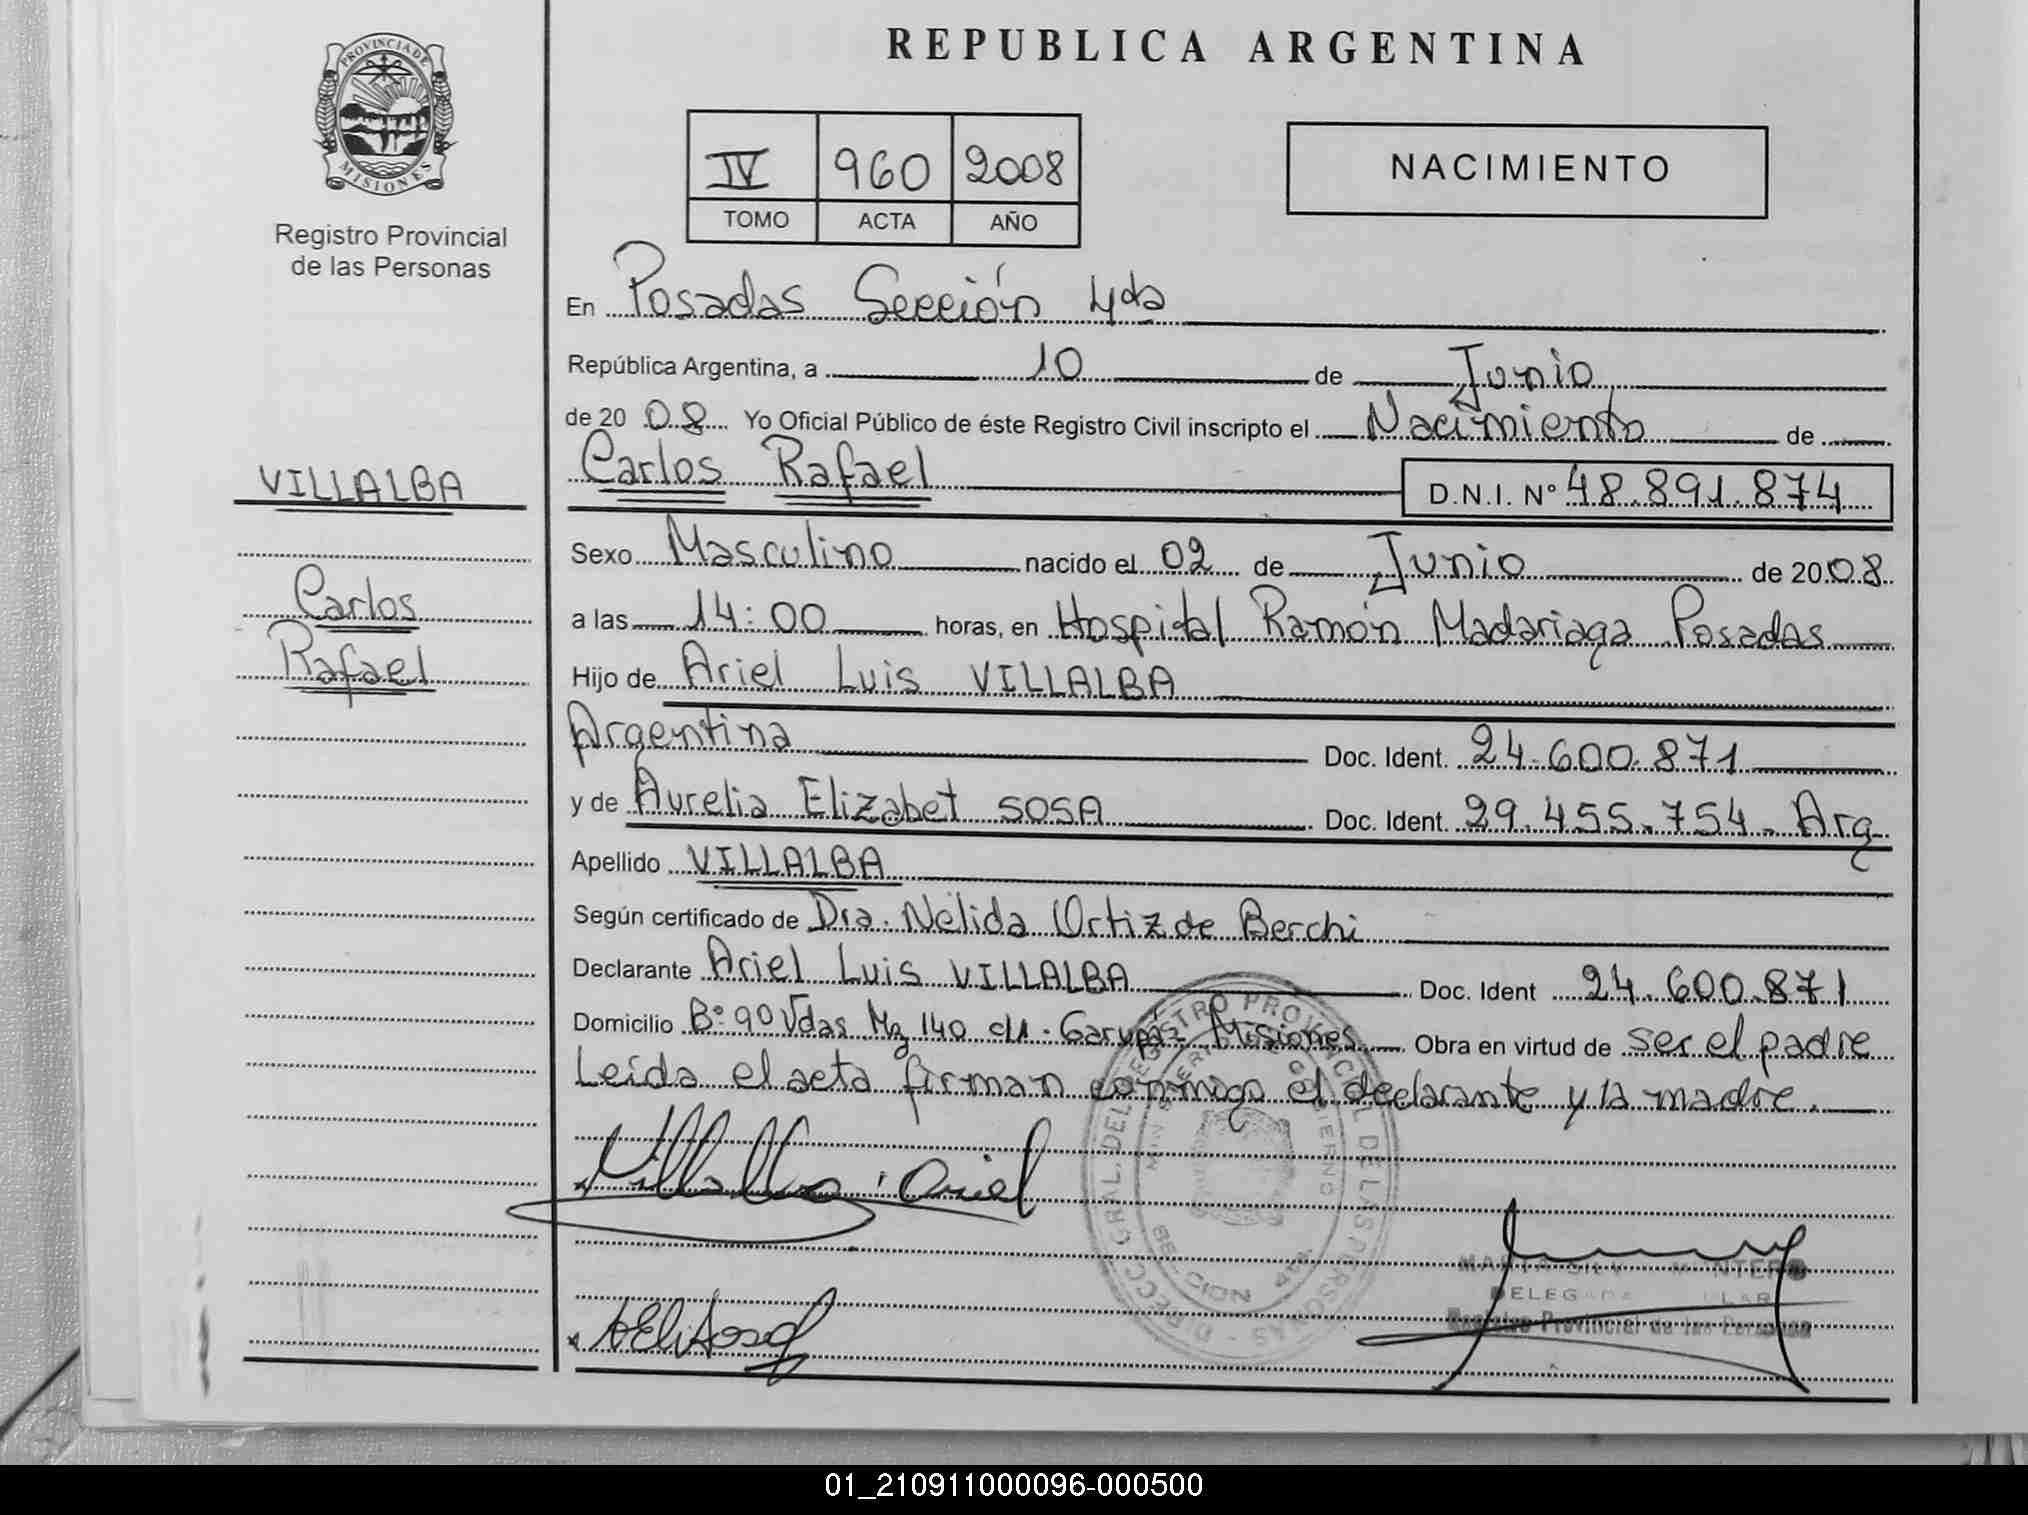 PROVINCIA DE
MISIONES
Registro Provincial
de las Personas
VILLALBA
Carlos
Rafael
REPUBLICA ARGENTINA
IV 960 2008
TOMO ACTA AÑO
NACIMIENTO
En Posadas Sección 4da
República Argentina, a 10 de Junio
de 20 08 Yo Oficial Público de éste Registro Civil inscripto el Nacimiento de
Carlos Rafael D.N.I. N° 48.891.874
Sexo Masculino nacido el 02 de Junio de 20 08
a las 14:00 horas, en Hospital Ramón Madariaga Posadas
Hijo de Ariel Luis VILLALBA
Argentina Doc. Ident. 24.600.871
y de Aurelia Elizabet SOSA Doc. Ident. 29.455.754. Arg
Apellido VILLALBA
Según certificado de Dra. Nélida Ortiz de Berchi
Declarante Ariel Luis VILLALBA Doc. Ident 24.600.871
Domicilio B° 90 Vdas Mz 140 c/1. Garupás Misiones. Obra en virtud de ser el padre
Leída el acta firman conmigo el declarante y la madre.
Villalba Ariel
AEliSosa
DIRECC. GRAL. DEL REGISTRO PROVINCIAL DE LAS PERSONAS
MINISTERIO GOBIERNO
MONTERO
Registro Provincial de las Personas
01_210911000096-000500